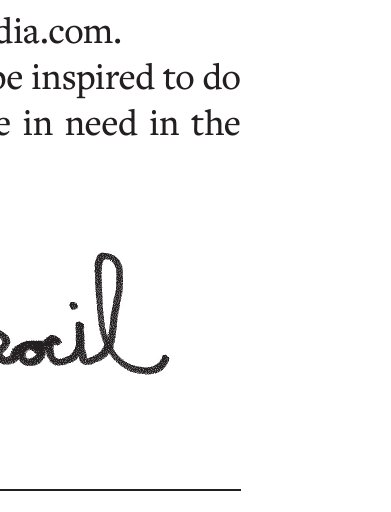 dia.com.
be inspired to do
e in need in the
ocil